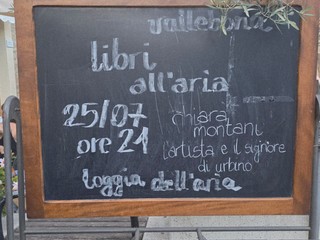 vallebona
libri
all'aria
25/07
ore 21
chiara
montani
l'artista e il signore
di urbino
loggia dell'aria